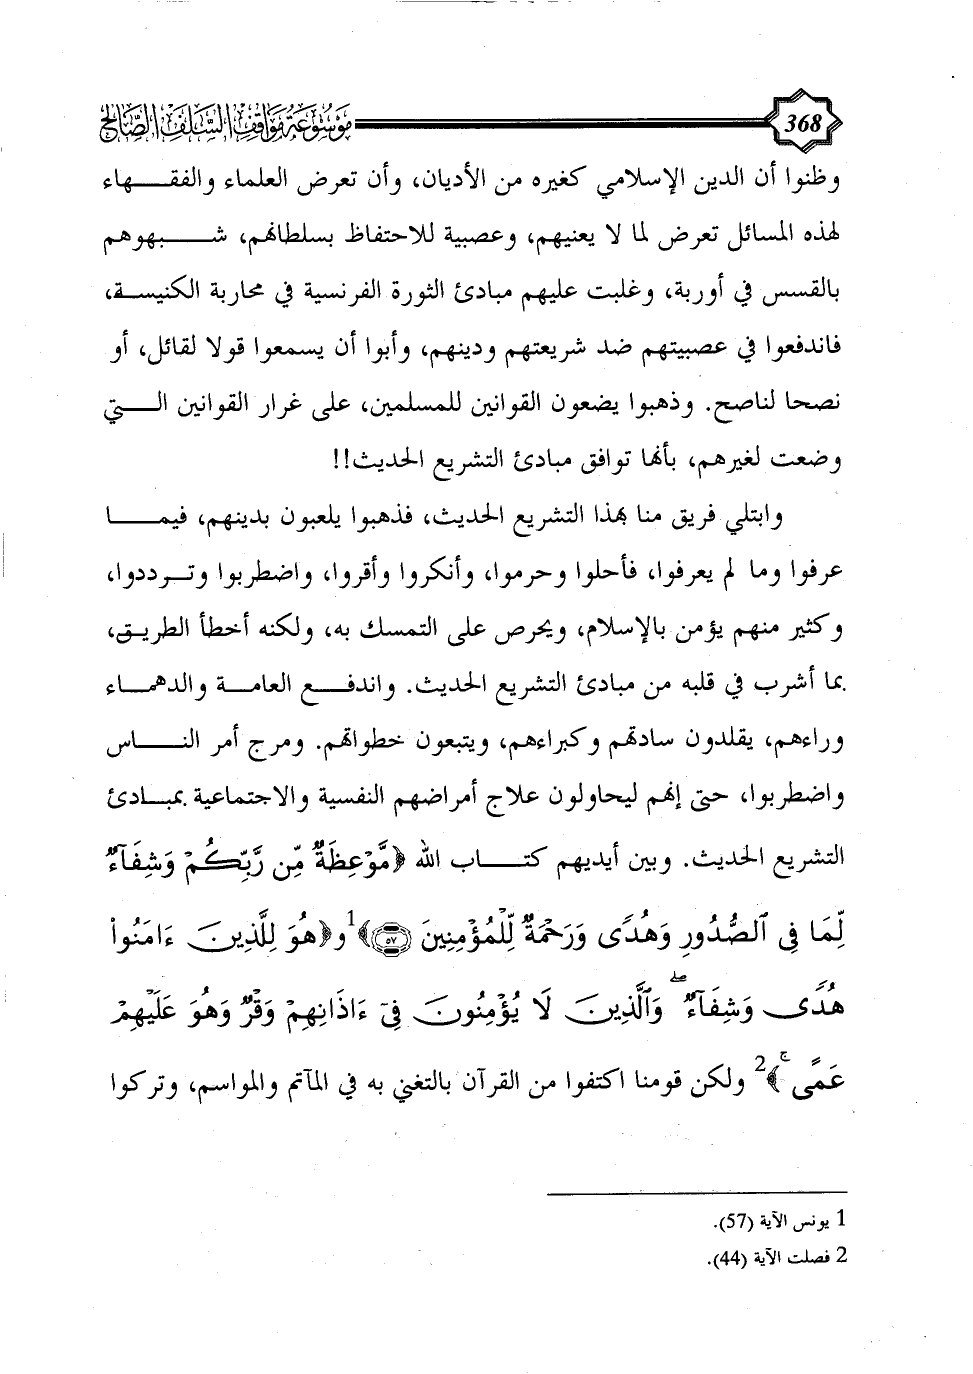 موسوعة مواقف السلف الصالح
368
وظنوا أن الدين الإسلامي كغيره من الأديان، وأن تعرض العلماء والفقهاء
لهذه المسائل تعرض لما لا يعنيهم، وعصبية للاحتفاظ بسلطانهم، شبهوهم
بالقسس في أوربة، وغلبت عليهم مبادئ الثورة الفرنسية في محاربة الكنيسة،
فاندفعوا في عصبيتهم ضد شريعتهم ودينهم، وأبوا أن يسمعوا قولا لقائل، أو
نصحا لناصح. وذهبوا يضعون القوانين للمسلمين، على غرار القوانين التي
وضعت لغيرهم، بأنها توافق مبادئ التشريع الحديث!!
وابتلي فريق منا بهذا التشريع الحديث، فذهبوا يلعبون بدينهم، فيما
عرفوا وما لم يعرفوا، فأحلوا وحرموا، وأنكروا وأقروا، واضطربوا وترددوا،
وكثير منهم يؤمن بالإسلام، ويحرص على التمسك به، ولكنه أخطأ الطريق،
بما أشرب في قلبه من مبادئ التشريع الحديث. واندفع العامة والدهماء
وراءهم، يقلدون سادتهم وكبراءهم، ويتبعون خطواتهم. ومرج أمر الناس
واضطربوا، حتى إنهم ليحاولون علاج أمراضهم النفسية والاجتماعية بمبادئ
التشريع الحديث. وبين أيديهم كتاب الله ﴿مَّوْعِظَةٌ مِّن رَّبِّكُمْ وَشِفَآءٌ
لِّمَا فِي ٱلصُّدُورِ وَهُدًى وَرَحْمَةٌ لِّلْمُؤْمِنِينَ ٥٧﴾1 و﴿هُوَ لِلَّذِينَ ءَامَنُوا۟
هُدًى وَشِفَآءٌ ۖ وَٱلَّذِينَ لَا يُؤْمِنُونَ فِيٓ ءَاذَانِهِمْ وَقْرٌ وَهُوَ عَلَيْهِمْ
عَمًى ۚ﴾2 ولكن قومنا اكتفوا من القرآن بالتغني به في المآتم والمواسم، وتركوا
1 يونس الآية (57).
2 فصلت الآية (44).